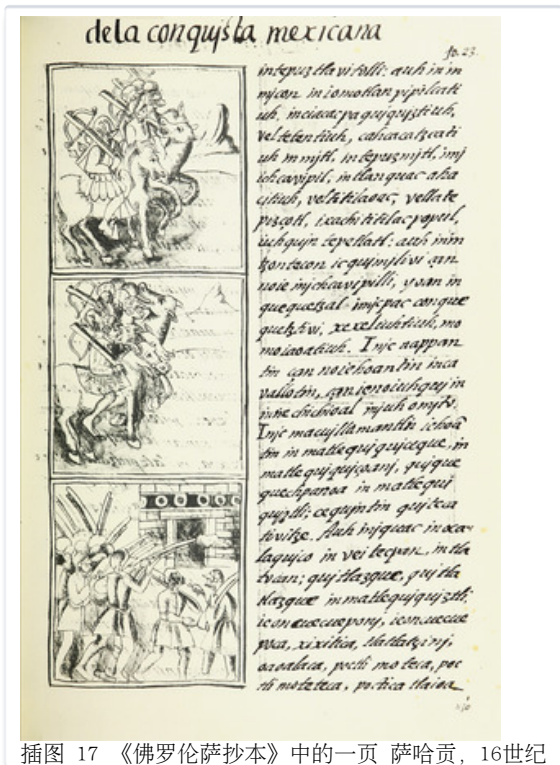 dela conquista mexicana
fo. 23.
intepuztlavitolli: auh inim
mjcon in iomotlan pipilcati
uh, inciacacpa quiquiztiuh,
vel tetentiuh, cahcacatzcati
uh in mjtl, in tepuzmjtl, imj
ichcavipil, intlanquac aha
citiuh, veltitilaoac, vellate
pizcotl, ixachi titilacpopul,
iuhqujn tepetlatl: auh inim
tzontecon ic qujmjlivi çan
noie imjchcavipilli, yoan in
quequetzal imjcpac conque
quetztivi, xexeliuhtiuh, mo
moiaoatiuh. Injc nappan
tin can noiehoantin inca
vallotin, çan ie noiuhquj in
injc machuillamantin iehoã
tin in matlequiquiceque, in
matlequiquiçoanj, quique
quechpanoa in matlequi
quiztli: cequintin quiteca
tivitze. Auh injquac in oca
laquico in vei tecpan, in tla
tvcan; quitlazque, quitla
tlazque in matlequiquiztli:
ic oneuecueponj, iconuecue
poca, xixitica, tlatlatzinj,
oaoalaca, poctli moteca, poc
tli moteteca, poctica tlaioa
插图 17 《佛罗伦萨抄本》中的一页 萨哈贡，16世纪